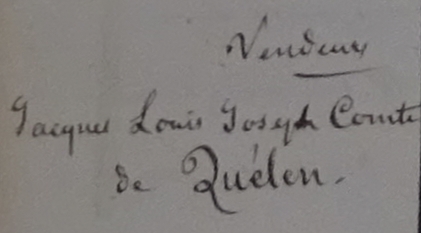 Vendeurs
Jacques Louis Joseph Comte
de Quélen.